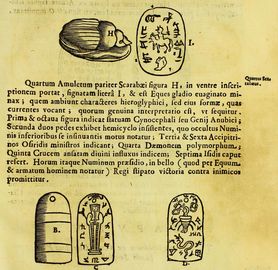 H
I.
Quartum Amuletum pariter Scarabæi figura H, in ventre inscri-
ptionem portat, signatam litera I, & est Eques gladio euaginato mi-
nax; quem ambiunt characteres hieroglyphici, sed eius formæ, quas
currentes vocant; quorum genuina interpretatio est, vt sequitur.
Prima & octaua figura indicat statuam Cynocephali seu Genij Anubici;
Secunda duos pedes exhibet hemicyclo insistentes, quo occultus Numi-
nis inferioribus se insinuantis motus notatur; Tertia & Sexta Accipitri-
nos Osiridis ministros indicat; Quarta Dæmonem polymorphum;
Quinta Crucem ansatam diuini influxus indicem; Septima Isidis caput
refert. Horum itaque Numinum præsidio, in bello (quod per Equum
& armatum hominem notatur) Regi stipato victoria contra inimicos
promittitur.
B.
C
D